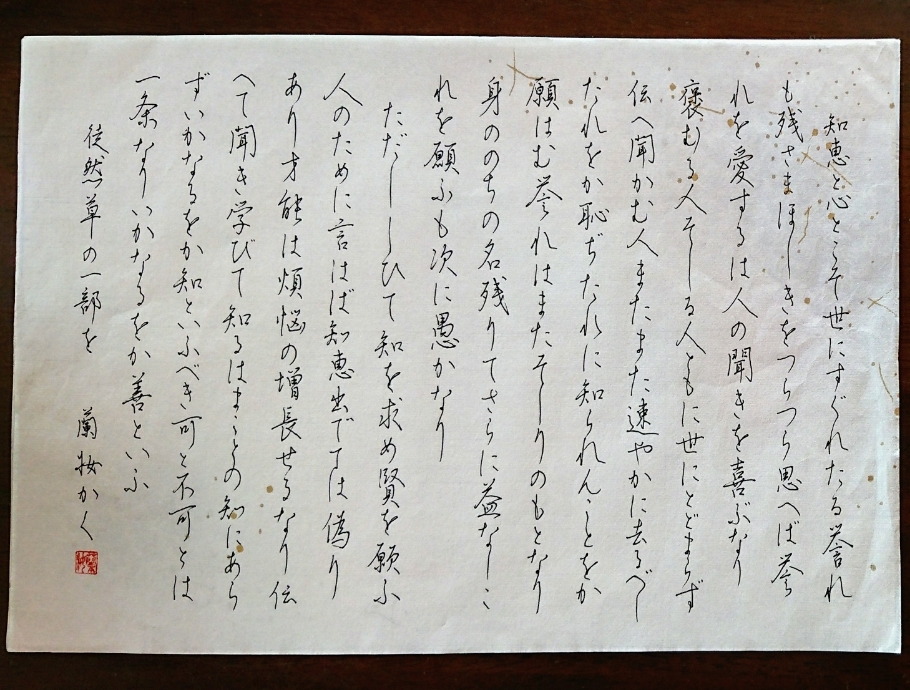 知恵と心とこそ世にすぐれたる誉れ
も残さまほしきをつらつら思へば誉
れを愛するは人の聞きを喜ぶなり
褒むる人そしる人ともに世にとどまらず
伝へ聞かむ人またまた速やかに去るべし
たれをか恥ぢたれに知られんことをか
願はむ誉れはまたそしりのもとなり
身ののちの名残りてさらに益なしこ
れを願ふも次に愚かなり
ただししひて知を求め賢を願ふ
人のために言はば知恵出でては偽り
あり才能は煩悩の増長せるなり伝
へて聞き学びて知るはまことの知にあら
ずいかなるをか知といふべき可と不可とは
一条なりいかなるをか善といふ
徒然草の一部を
蘭妝かく